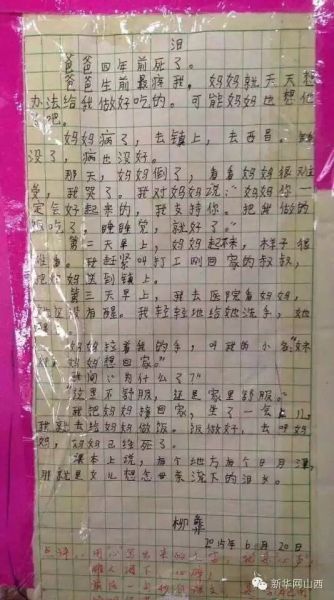 泪
爸爸四年前死了。
爸爸生前最疼我。妈妈就天天想
办法给我做好吃的。可能妈妈也想他
了吧。
妈妈病了,去镇上,去西昌。
没了,病也没好。
那天,妈妈倒了,看看妈妈很难
受,我哭了。我对妈妈说:“妈妈你一
定会好起来的,我支持你。把我做的
饭吃了,睡睡觉,就好了。”
第二天早上,妈妈起不来,样子很
难看。我赶紧叫打工刚回家的叔叔,
把妈妈送到镇上。
第三天早上,我去医院看妈妈,
她还没有醒。我轻轻地给她洗手,她
妈妈拉着我的手,叫我的小名:
妈妈想回家。”
我问:“为什么了?”
“这里不舒服,还是家里舒服。”
我把妈妈接回家,坐了一会儿,
我就去给妈妈做饭。饭做好,去叫妈
妈,妈妈已经死了。
课本上说,有个地方有个日月潭,
那就是女儿想念母亲流下的泪水。
柳彝
2015年6月20日
新华网山西